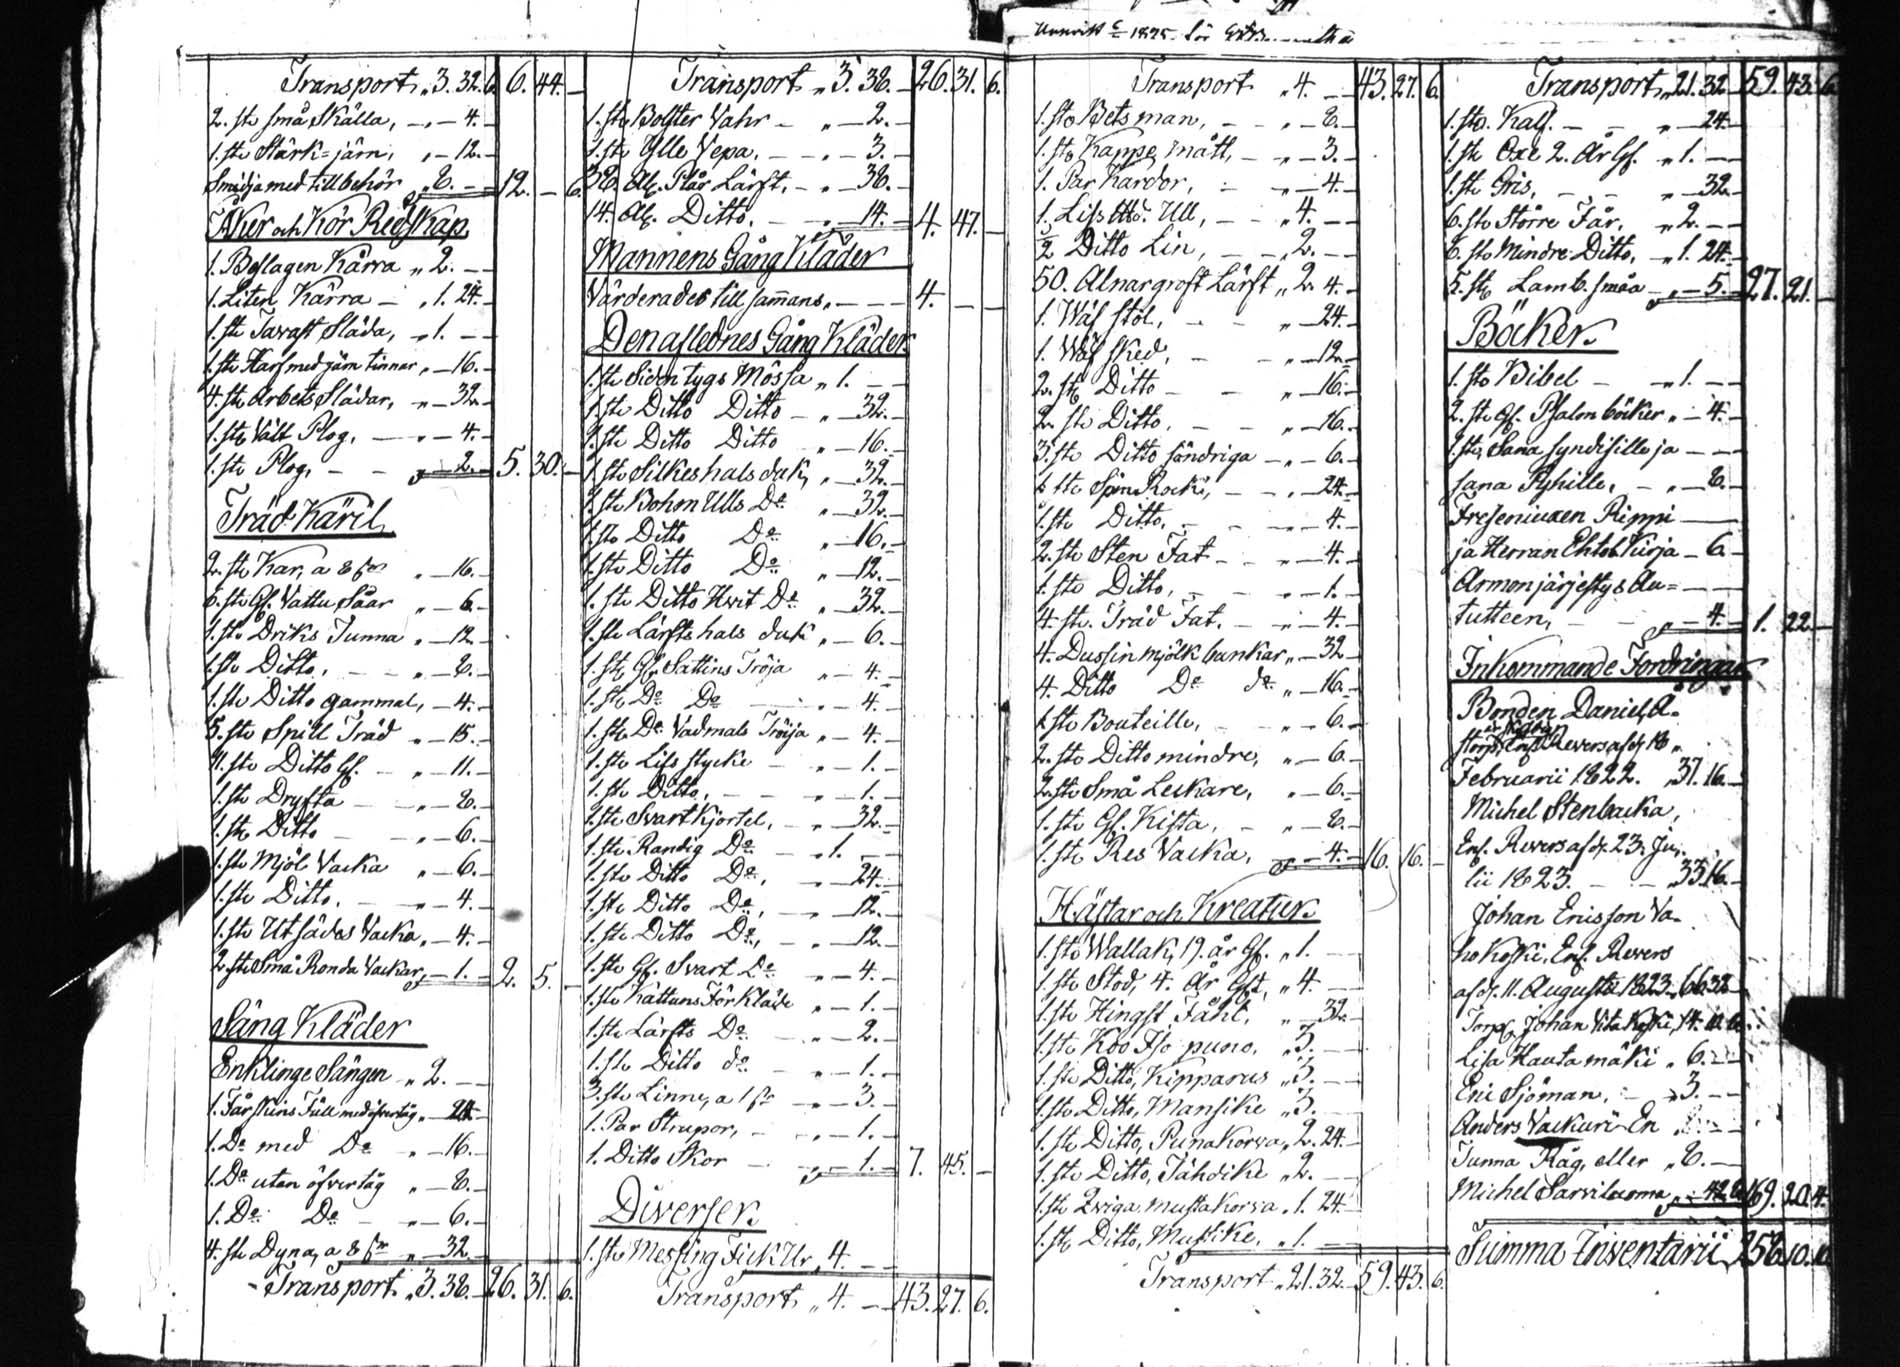 Transport „ 3. 32. 6. 6. 44. —
2. st: små Skälla, — „ — 4. —
1. st: Stärk=järn, „ — 12. —
Smidja med tillbehör „ 8. — 12. — 6.
Åker och Kör Redskap
1. Beslagen Kärra „ 2. — —
1. Liten Kärra — „ 1. 24. —
1. st: Tavast Släda, „ 1. — —
1. st: Harf med järn tinnar „ — 16. —
4. st: Arbets Slädar, „ — 32. —
1. st: Vält Plog, — „ — 4. —
1. st: Plog, — — „ — 2. — 5. 30. —
Träd Käril
2. st: Kar, a 8 sk „ — 16. —
6. st: Gl. Vattu Såar „ — 6. —
1. st: Driks Tunna „ — 12. —
1. st: Ditto, — — „ — 8. —
1. st: Ditto gammal, „ — 4. —
5. st: Spill Träd „ — 15. —
11. st: Ditto Gl. — „ — 11. —
1. st: Dryfta — — „ — 8. —
1. st: Ditto — — „ — 6. —
1. st: Mjöl Vacka „ — 6. —
1. st: Ditto. — — „ — 4. —
1. st: Utsädes Vacka „ — 4. —
2. st: Små Ronda Vackar, — 1. — 2. 5. —
Säng Kläder
Enklinge Sängen „ 2. — —
1. Fårskins Fäll med öfvertåg „ — 24. —
1. D:o med D:o „ — 16. —
1. D:o utan öfvertåg „ — 8. —
1. D:o D:o — „ — 6. —
4. st: Dyna, a 8 sk „ — 32. —
Transport „ 3. 38. — 26. 31. 6.
Transport „ 3. 38. — 26. 31. 6.
1. st: Bolster Vahr — „ — 2. —
1. st: Ylle Vepa. — — „ — 3. —
38. Al: Blår Lärft, — „ — 38. —
14. Al: Ditto. — „ — 14. — 4. 47. —
Mannens Gång Kläder
Värderades till sammans „ — — — 4. — —
Den aflednes Gång Kläder
1. st: Sidentygs Mössa „ 1. — —
1. st: Ditto Ditto — „ — 32. —
1. st: Ditto Ditto — „ — 16. —
1. st: Silkes halsduk, „ — 32. —
1. st: Bohm Ulls D:o „ — 32. —
1. st: Ditto D:o „ — 16. —
1. st: Ditto D:o „ — 12. —
1. st: Ditto Hvit D:o „ — 32. —
1. st: Lärfts halsduk „ — 6. —
1. st: Gl. Sattins Tröja „ — 4. —
1. st: D:o D:o — „ — 4. —
1. st: D:o Vadmals Tröija „ — 4. —
1. st: Lifstycke — „ — 1. —
1. st: Ditto, — — „ — 1. —
1. st: Svart Kjortel, — „ — 32. —
1. st: Randig D:o — „ 1. — —
1. st: Ditto D:o, — „ — 24. —
1. st: Ditto D:o, — „ — 12. —
1. st: Ditto D:o, — „ — 12. —
1. st: Gl. Svart D:o — „ — 4. —
1. st: Kattuns Förkläde „ — 1. —
1. st: Lärfts D:o — „ — 2. —
1. st: Ditto d:o — „ — 1. —
3. st: Linne, a 1 sk — „ — 3. —
1. Par Strupor, — „ — 1. —
1. Ditto Skor — „ — 1. — 7. 45. —
Diverser.
1. st: Messing Fick Ur „ 4. — —
Transport „ 4. — — 43. 27. 6.
1825. för
Transport „ 4. — — 43. 27. 6.
1. st: Betsman, — — „ — 8. —
1. st: Kappe mått, — „ — 3. —
1. Par Kardor, — „ — 4. —
1. Lis: Ull, — — „ 4. —
1/2 Ditto Lin, — — „ 2. —
50. Alnar groft Lärft „ 2. 4. —
1. Wäf stol, — — „ — 24. —
1. Wäf sked, — — „ — 12. —
2. st: Ditto — — „ — 16. —
2. st: Ditto, — — „ — 16. —
3. st: Ditto söndriga — „ — 6. —
1. st: Spin Rock, — — „ — 24. —
1. st: Ditto, — — „ — 4. —
2. st: Sten Fat — — „ — 4. —
1. st: Ditto, — — „ — 1. —
4. st: Träd Fat. — — „ — 4. —
4. Dussin mjölk bunkar „ — 32. —
4. Ditto D:o d:o „ — 16. —
1. st: Bouteille, — — „ — 6. —
2. st: Ditto mindre, „ — 6. —
2. st: Små Leckare, „ — 6. —
1. st: Gl. Kista, — „ — 8. —
1. st: Res Vacka, „ — 4. — 16. 16. —
Hästar och Kreatur.
1. st: Wallak, 19. år Gl. „ 1. — —
1. st: Stod, 4. År Glt, „ 4. — —
1. st: Hingst Fåhl, „ — 32. —
1. st: Koo Iso puno, „ 3. — —
1. st: Ditto, Kipparus „ 3. — —
1. st: Ditto, Mansike „ 3. — —
1. st: Ditto, Punakorva „ 2. 24. —
1. st: Ditto, Tähdike „ 2. — —
1. st: Qviga, mustakorva „ 1. 24. —
1. st: Ditto, Musike, „ 1. — —
Transport „ 21. 32. — 59. 43. 6.
Transport „ 21. 32. — 59. 43. 6.
1. st: Kalf. — — „ — 24. —
1. st: Oxe 2. År Gl. „ 1. — —
1. st: Gris, — — „ — 32. —
6. st: Större Får, „ 2. — —
6. st: Mindre Ditto, „ 1. 24. —
5. st: Lamb småa „ — 5. — 27. 21. —
Böcker.
1. st: Bibel — — „ 1. — —
2. st: Gl. Psalmböcker „ — 4. —
1. st: Sana syndisille ja — —
sana Pyhille, — „ — 8. —
Freseniuxen Rippi —
ja Herran Ehtol. Kirja — 6. —
Armonjärjestys Au=
tutteen, — — „ — 4. — 1. 22. —
Inkommande Fordringar
Bonden Daniel A-
Revers af d: 18
Februarii 1822. „ 37. 16. —
Michel Stenbacka,
Enl. Revers af d: 23. Ju-
lii 1823. — — „ 33. 16. —
Johan Ericsson Va-
hokoski, Enl. Revers
af d: 11. Augusti 1823. 66. 32. —
Torp: Johan
Lisa Hautamäki „ 6. — —
Eric Sjöman, — „ 3. — —
Anders Vackuri En
Tunna Råg, eller „ 8. — —
Michel 169. 20. 4.
Summa Inventarii 256. 10. 10.